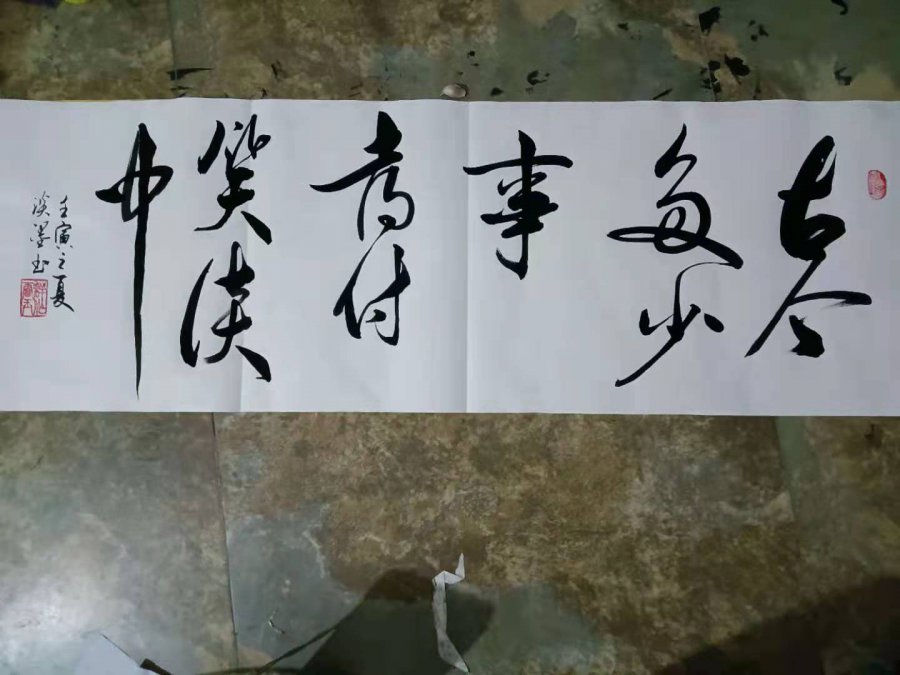 古今
多少
事
都付
笑谈
中
壬寅之夏
淡墨书